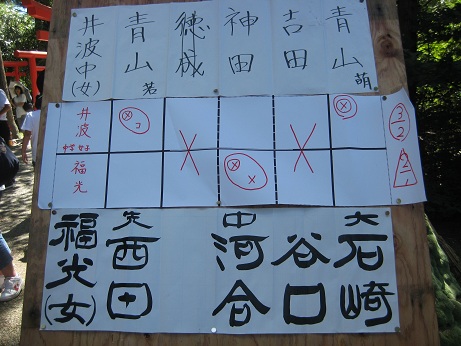 井波中(女)
青山 若
神田
吉田
青山 萌
井波
福光
コ
3
2
2
1
福光(女)
先 西田
中 河合
谷口
大 石崎